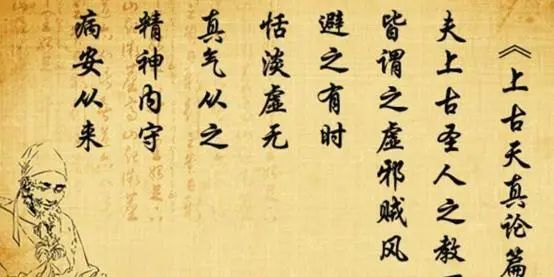 《上古天真论篇
夫上古圣人之教
皆谓之虚邪贼风
避之有时
恬淡虚无
真气从之
精神内守
病安从来